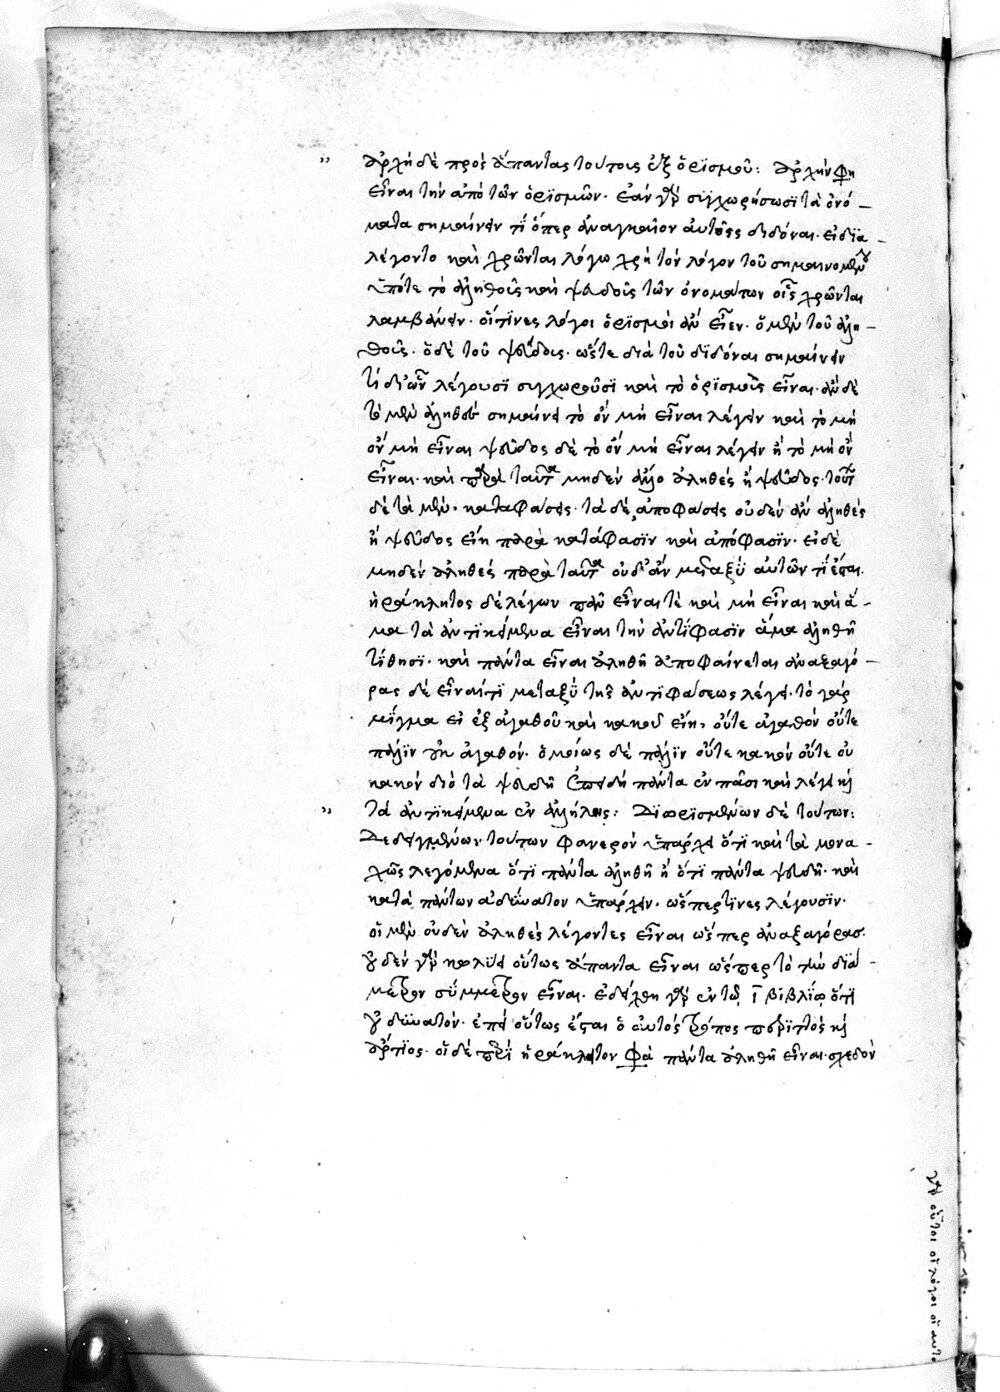 ἀρχὴ δὲ πρὸς ἅπαντας τούτοις ἐξ ὁρϊσμοῦ: ἀρχήν φη
εἶναι τὴν ἀπὸ τῶν ὁρϊσμῶν· ἐὰν γὰρ συγχωρήσωσϊ τὰ ὀνό–
ματα σημαίνειν τῒ ὅπερ ἀναγκαῖον αὐτοὺς διδόναι· εἰ δϊα–
λέγοντο καὶ χρῶνται λόγω χρὴ τὸν λόγον τοῦ σημαινομένου
ὑπότε τὸ ἀληθοῦς καὶ ψευδοῦς τῶν ὀνομάτων οἷς χρῶνται
λαμβάνειν· οἵτϊνες λόγοι ὁρϊσμοὶ ἂν εἶεν· ὁ μὲν τοῦ ἀλη–
θοῦς· ὁ δὲ τοῦ ψεύδους· ὥστε διὰ τοῦ δϊδόναι σημαίνειν
τί δι' ὧν λέγουσϊ συγχωροῦσϊ καὶ τὸ ὁρϊσμοῖς εἶναι· ἂν δὲ
τὸ μὲν ἀληθοῦς σημαίνει τὸ ὂν μὴ εἶναι λέγειν καὶ τὸ μὴ
ὂν μὴ εἶναι ψεῦδος δὲ τὸ ὂν μὴ εἶναι λέγειν ἢ τὸ μὴ ὂν
εἶναι· καὶ παρὰ ταῦτα μηδὲν ἄλλο ἀληθὲς ἢ ψεῦδος· τούτων
δὲ τὰ μὲν· καταφάσεις· τὰ δὲ ἀποφάσεις οὐδὲν ἂν ἀληθὲς
ἢ ψεῦδος εἴη παρὰ κατάφασϊν καὶ ἀπόφασϊν· εἰ δὲ
μηδὲν ἀληθὲς παρὰ ταῦτα οὐδ' ἂν μεταξὺ αὐτῶν τῒ ἔσται.
ἡράκλητος δὲ λέγων πᾶν εἶναι τὲ καὶ μὴ εἶναι καὶ ἅ–
μα τὰ ἀντϊκείμενα εἶναι τὴν ἀντίφασϊν ἅμα ἀληθῆ
τίθησϊ· καὶ πάντα εἶναι ἀληθῆ ἀποφαίνεται ἀναξαγό–
ρας δὲ εἶναί τϊ μεταξὺ τῆς ἀντϊφάσεως λέγει· τὸ γὰρ
μῖγμα εἰ ἐξ ἀγαθοῦ καὶ κακοῦ εἴη, οὔτε ἀγαθὸν οὔτε
πάλϊν οὐκ ἀγαθόν· ὁμοίως δὲ πάλϊν οὔτε κακὸν οὔτε οὐ
κακὸν διὸ τὰ ψευδῆ ἐπειδὴ πάντα ἐν πᾶσι καὶ λέγει κὶ
τὰ ἀντϊκείμενα ἐν ἀλλήλοις: Δϊωρϊσμένων δὲ τούτων:
Δεδειγμένων τούτων φανερὸν ὑπάρχει ὅτϊ καὶ τὰ μονα–
χῶς λεγόμενα ὅτϊ πάντα ἀληθῆ ἢ ὅτϊ πάντα ψευδῆ· καὶ
κατὰ πάντων ἀδύνατον ὑπάρχειν· ὥσπερ τϊνες λέγουσϊν·
οἱ μὲν οὐδὲν ἀληθὲς λέγοντες εἶναι ὥσπερ ἀναξαγόρας.
οὐδὲν γὰρ κωλύει οὕτως ἅπαντα εἶναι ὥσπερ τὸ τὴν δϊά–
μετρον σύμμετρον εἶναι· ἐδείχθη γὰρ ἐν τῶ γ βιβλίω ὅτϊ
οὐ δύνατόν· ἐπεὶ οὕτως ἔσται ὁ αὐτὸς τρόπος περϊττὸς κὶ
ἄρτϊος· οἱ δὲ περὶ ἡράκλητον φα πάντα ἀληθῆ εἶναι· σχεδὸν
γὰρ οὗτοι οἱ λόγοι οἱ αὐτο